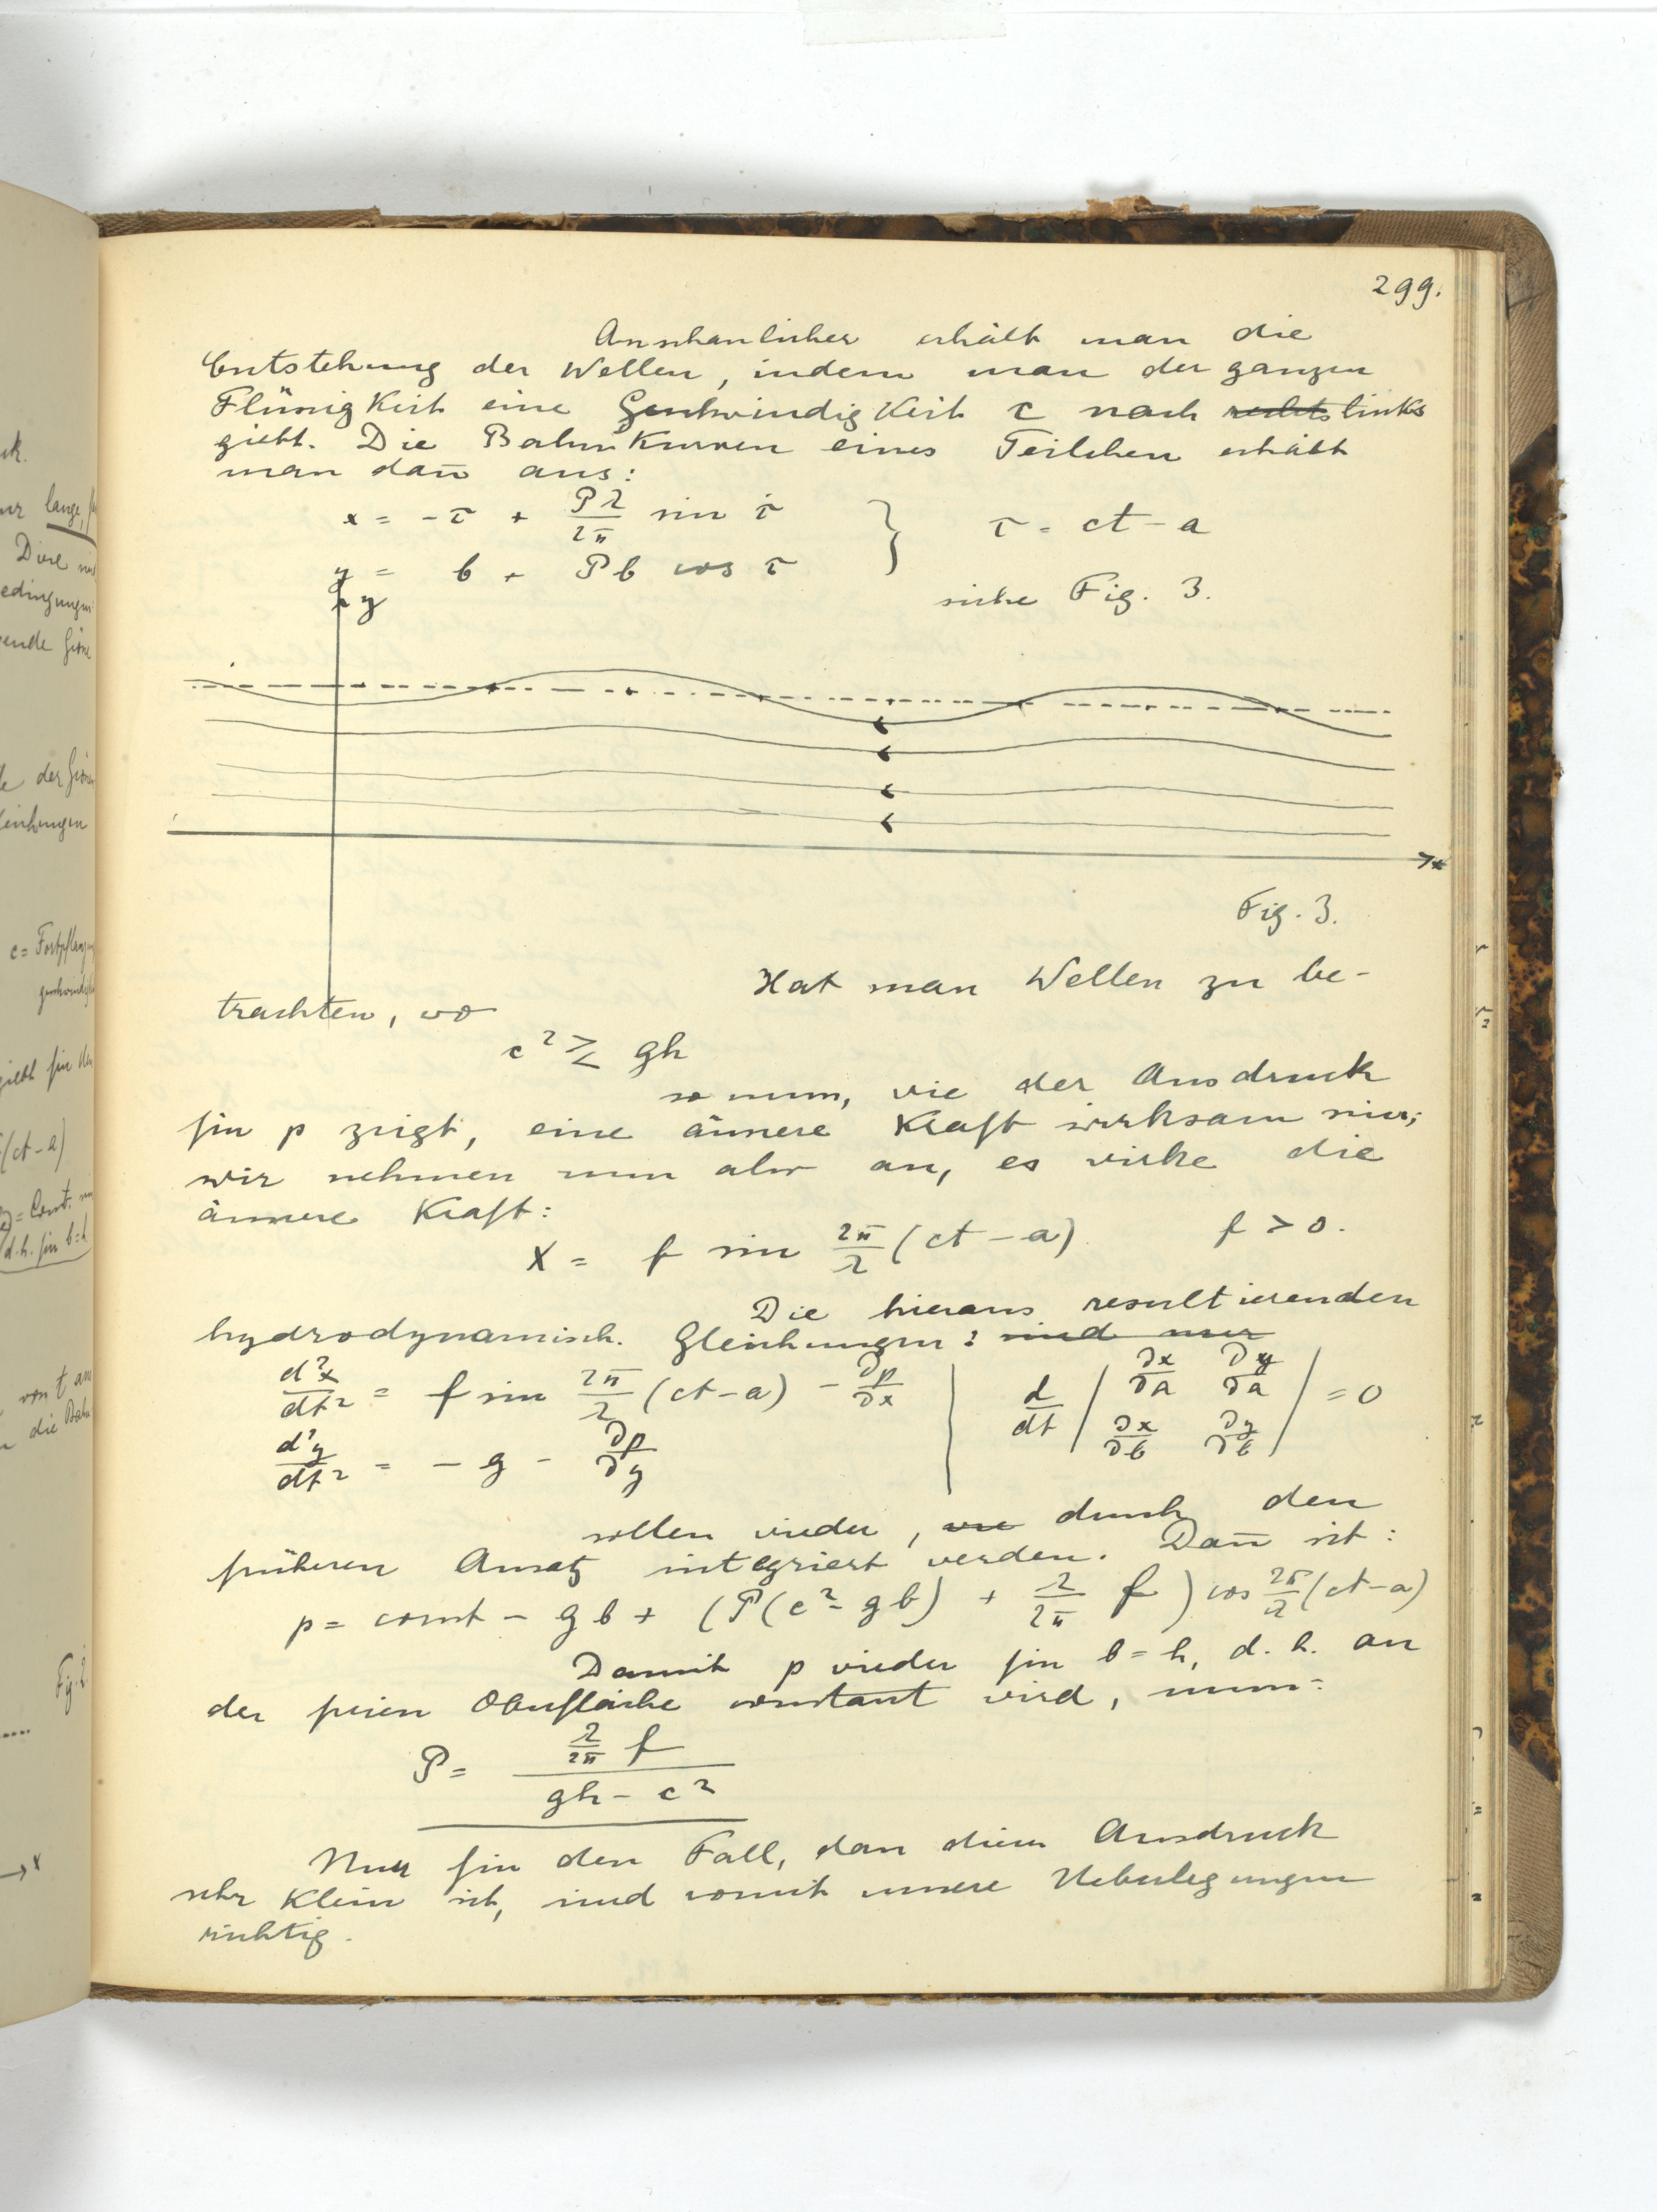 299.
Anschaulicher erhält man die
Entstehung der Wellen, indem man der ganzen
Flüssigkeit eine Geschwindigkeit c nach rechts links
giebt. Die Bahnkurven eines Teilchen erhält
man dañ aus:
x = -τ + Pλ/2π sin τ } τ = ct - a
y = b + Pb cos τ
siehe Fig. 3.
y
x
Fig. 3.
Hat man Wellen zu be-
trachten, wo
c² ≷ gh
so muss, wie der Ausdruck
für p zeigt, eine äussere Kraft wirksam sein;
wir nehmen nun also an, es wirke die
äussere Kraft:
X = f sin 2π/λ (ct - a) f > 0.
Die hieraus resultierenden
hydrodynamisch. Gleichungen: sind nur
d²x/dt² = f sin 2π/λ (ct - a) - ∂p/∂x | d/dt | ∂x/∂a ∂y/∂a | = 0
d²y/dt² = - g - ∂p/∂y | | ∂x/∂b ∂y/∂b |
sollen wieder, durch den
früheren Ansatz integriert werden. Dañ ist:
p = const - gb + (P(c² - gb) + λ/2π f) cos 2π/λ (ct - a)
Damit p wieder für b = h, d. h. an
der freien Oberfläche constant wird, muss:
P = λ/2π f / gh - c²
Nur für den Fall, dass dieser Ausdruck
sehr klein ist, sind somit unsere Ueberlegungen
richtig.
ur lange,
Diese
c = Fortpflanzungs
(ct - a)
= Const.
d. h. für b = h
von t
die Bahn
Fig. 2
x